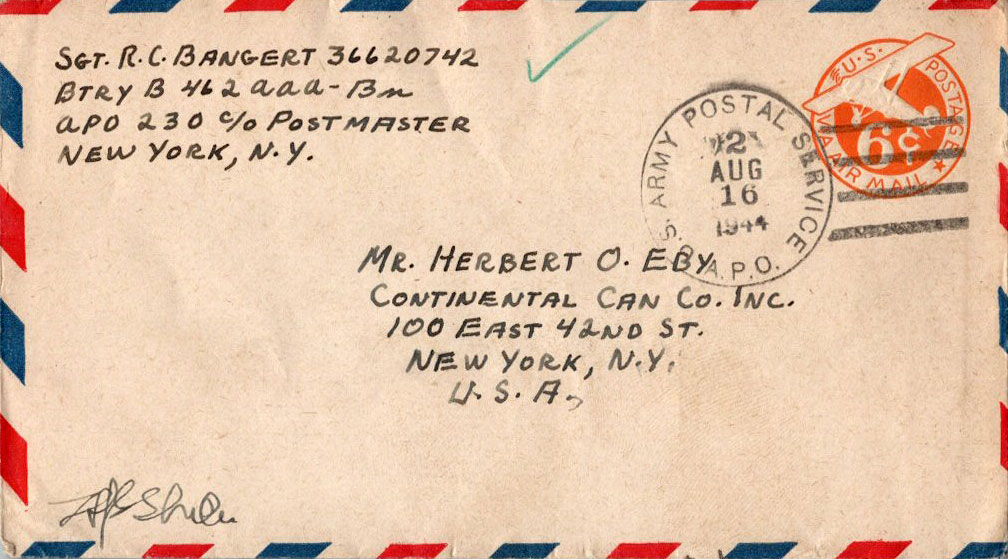 SGT. R.C. BANGERT 36620742
BTRY B 462 aaa-Bn
APO 230 c/o POSTMASTER
NEW YORK, N.Y.
U.S. POSTAGE
6¢
VIA AIR MAIL
U.S. ARMY POSTAL SERVICE
2
AUG
16
1944
A.P.O.
MR. HERBERT O. EBY
CONTINENTAL CAN CO. INC.
100 EAST 42ND ST.
NEW YORK, N.Y.
U.S.A.